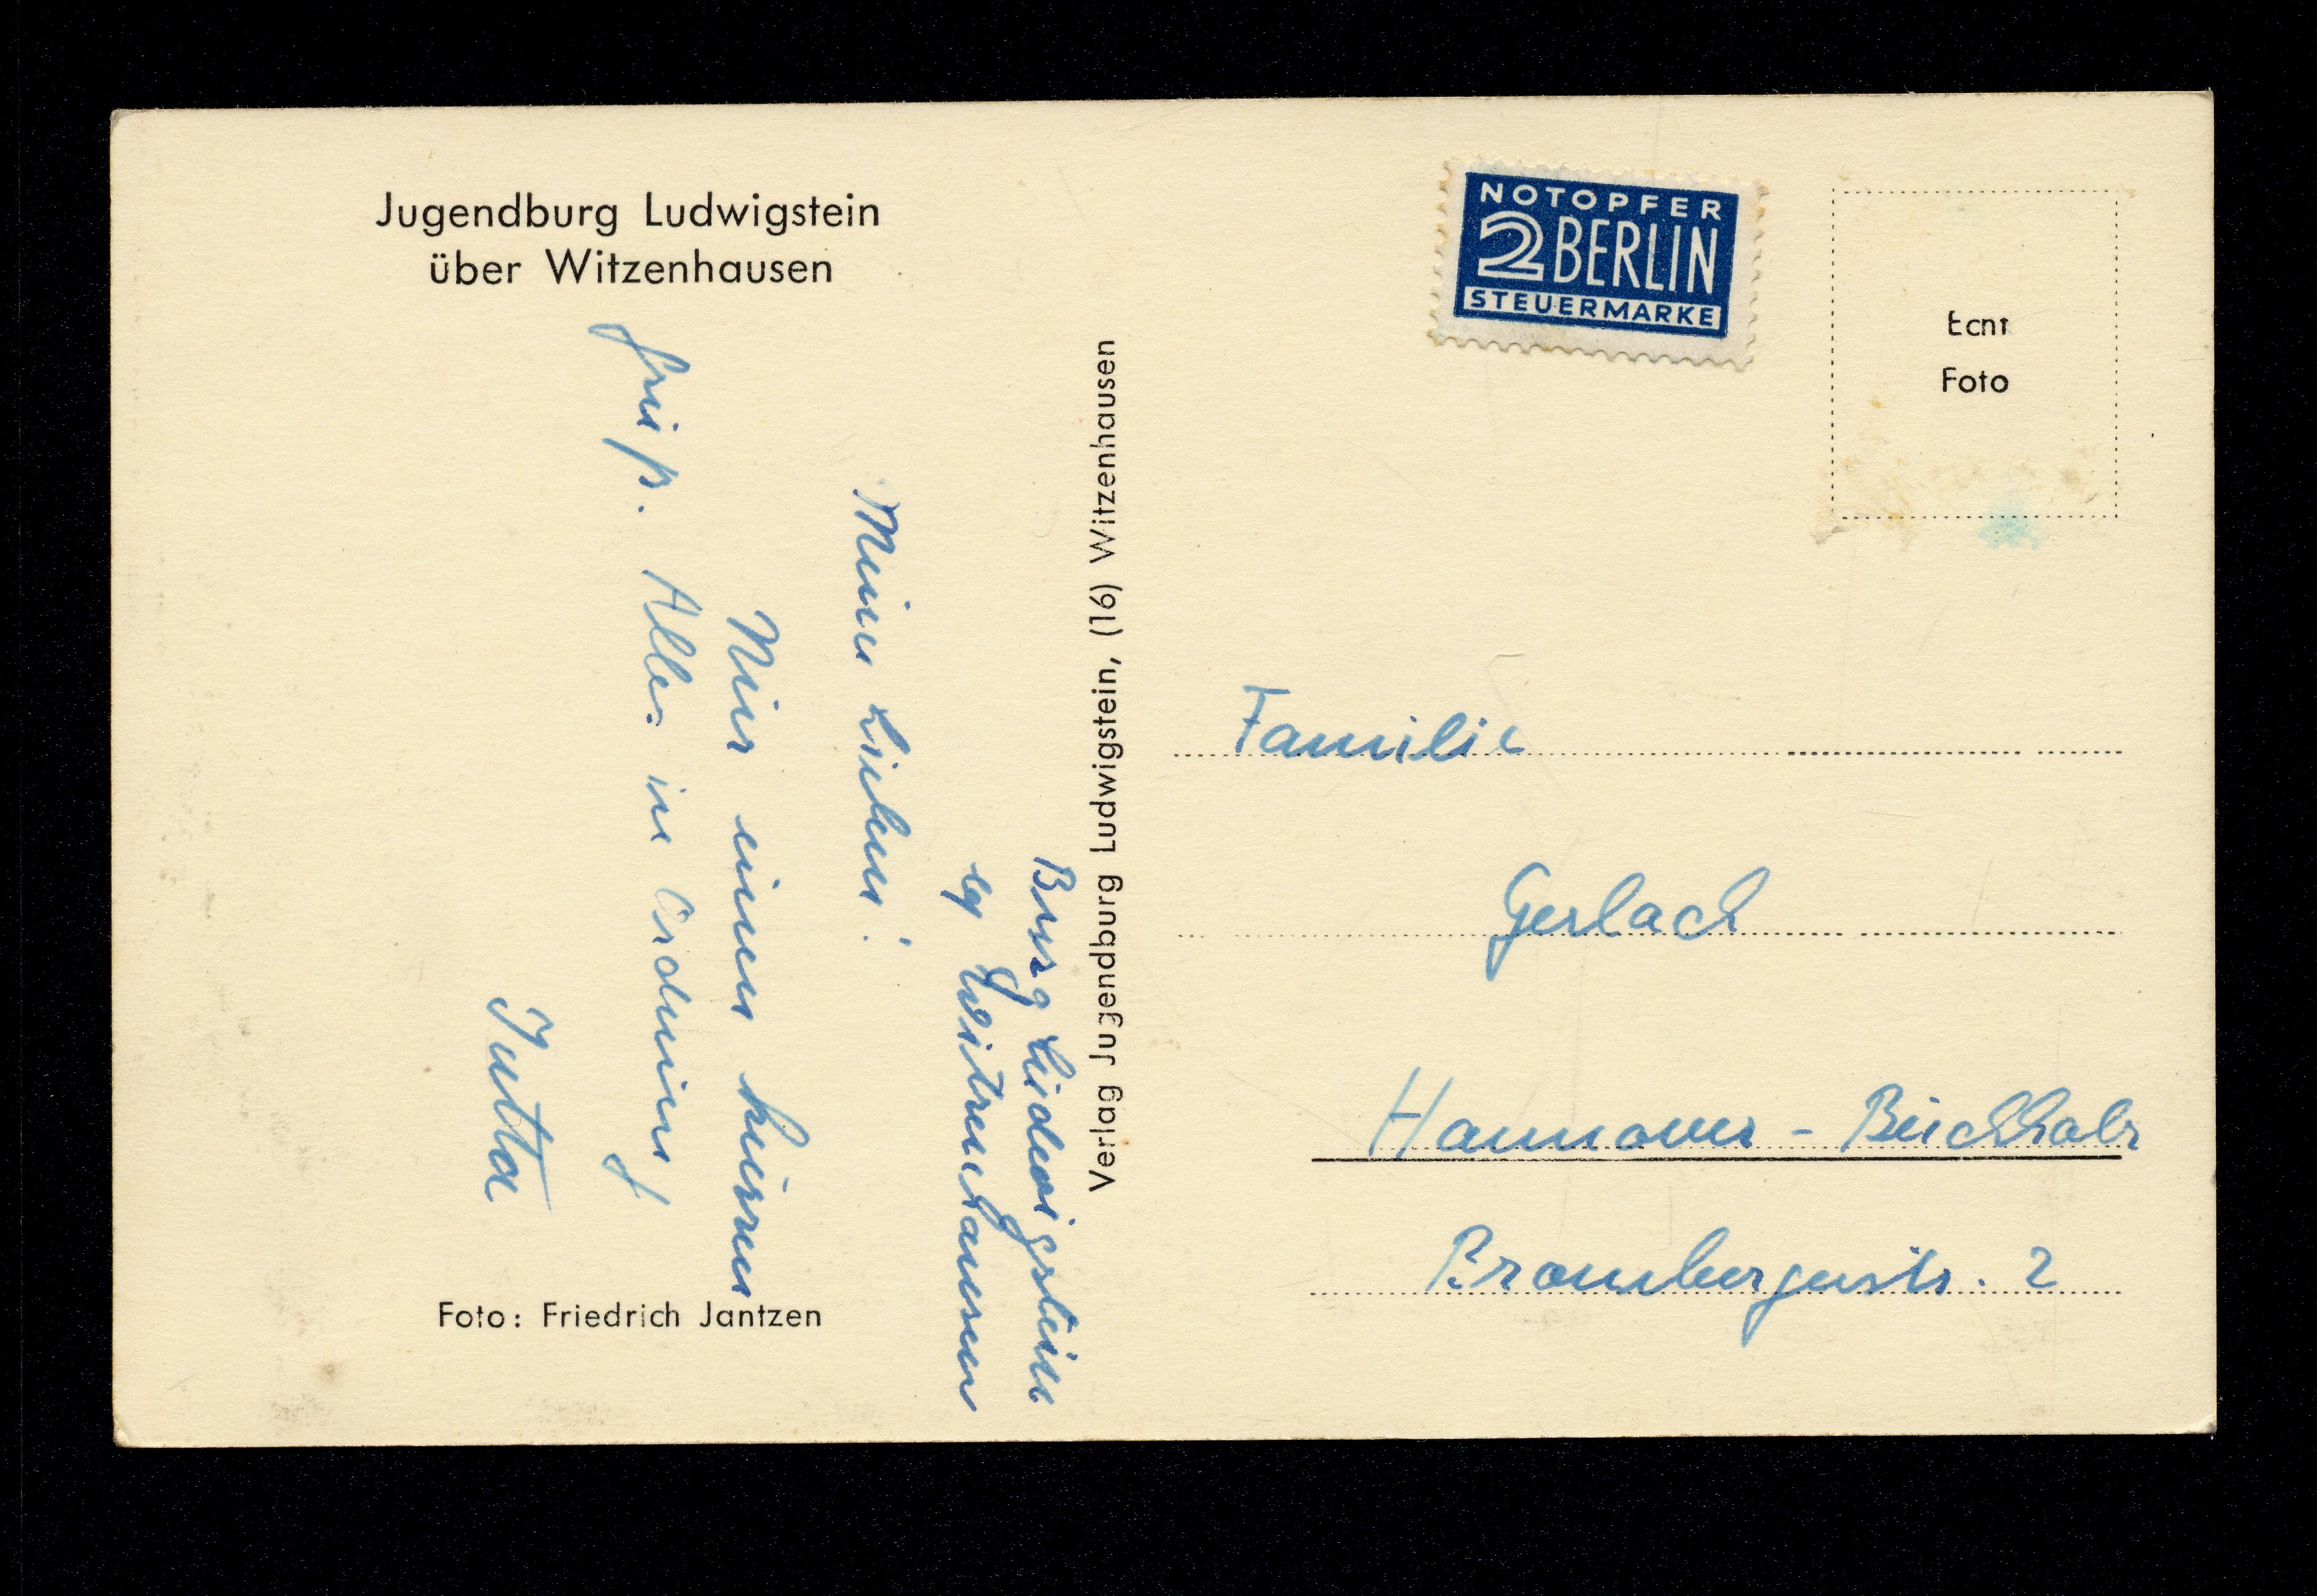 Jugendburg Ludwigstein
über Witzenhausen
Burg Ludwigstein
Witzenhausen
Meine Lieben!
Nur einen kurzen
Gruß. Alles in Ordnung
Jutta
Foto: Friedrich Jantzen
Verlag Jugendburg Ludwigstein, (16) Witzenhausen
NOTOPFER
2 BERLIN
STEUERMARKE
Echt
Foto
Familie
Gerlach
Hannover - Buchholz
Brombergerstr. 2